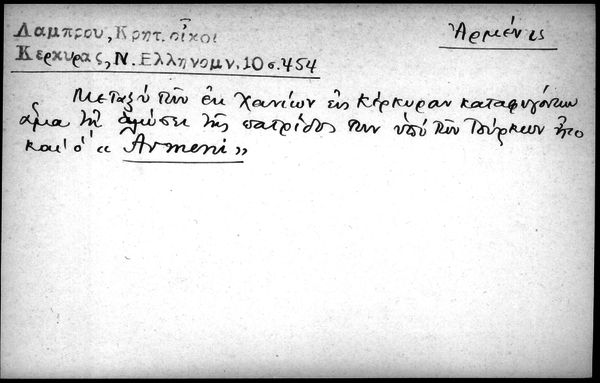 Λαμπρου, Κρητ. οἶκοι
Ἀρμένις
Κερκυρας, Ν. Ελληνομν. 10 σ. 454
Μεταξύ τῶν ἐκ Χανίων εἰς Κέρκυραν καταφυγόντων
ἅμα τῇ ἁλώσει τῆς πατρίδος των ὑπό τῶν Τούρκων ἦτο
καί ὁ « Armeni »